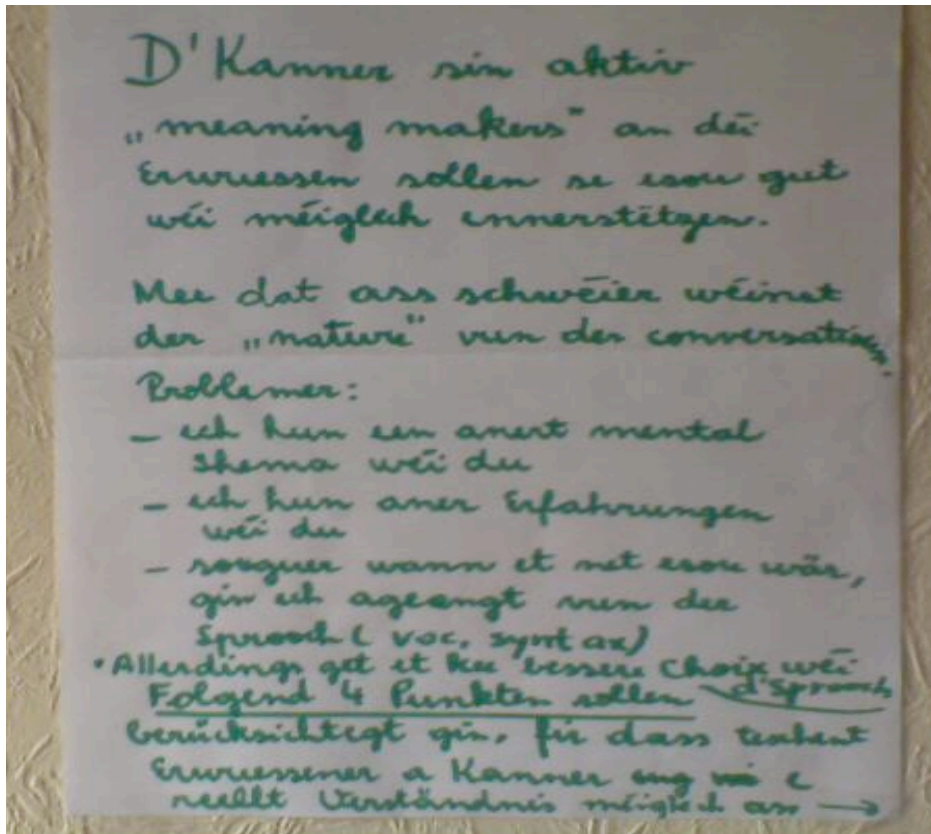 D'Kanner sin aktiv
„meaning makers" an déi
Erwuessen sollen se esou gut
wéi méiglech ennerstëtzen.
Mee dat ass schwéier wéinst
der „nature" vun den conversatiounen.
Problemer:
- ech hun een anert mental
Shema wéi du
- ech hun aner Erfahrungen
wéi du
- souguer wann et net esou wär,
gin ech ageengt vun der
Sprooch (voc, syntax)
• Allerdings get et kee bessere Choix wéi
d'Sprooch
Folgend 4 Punkten sollen
berücksichtegt gin, fir dass tëschent
Erwuessener a Kanner e
reellt Verständnis méiglech ass →